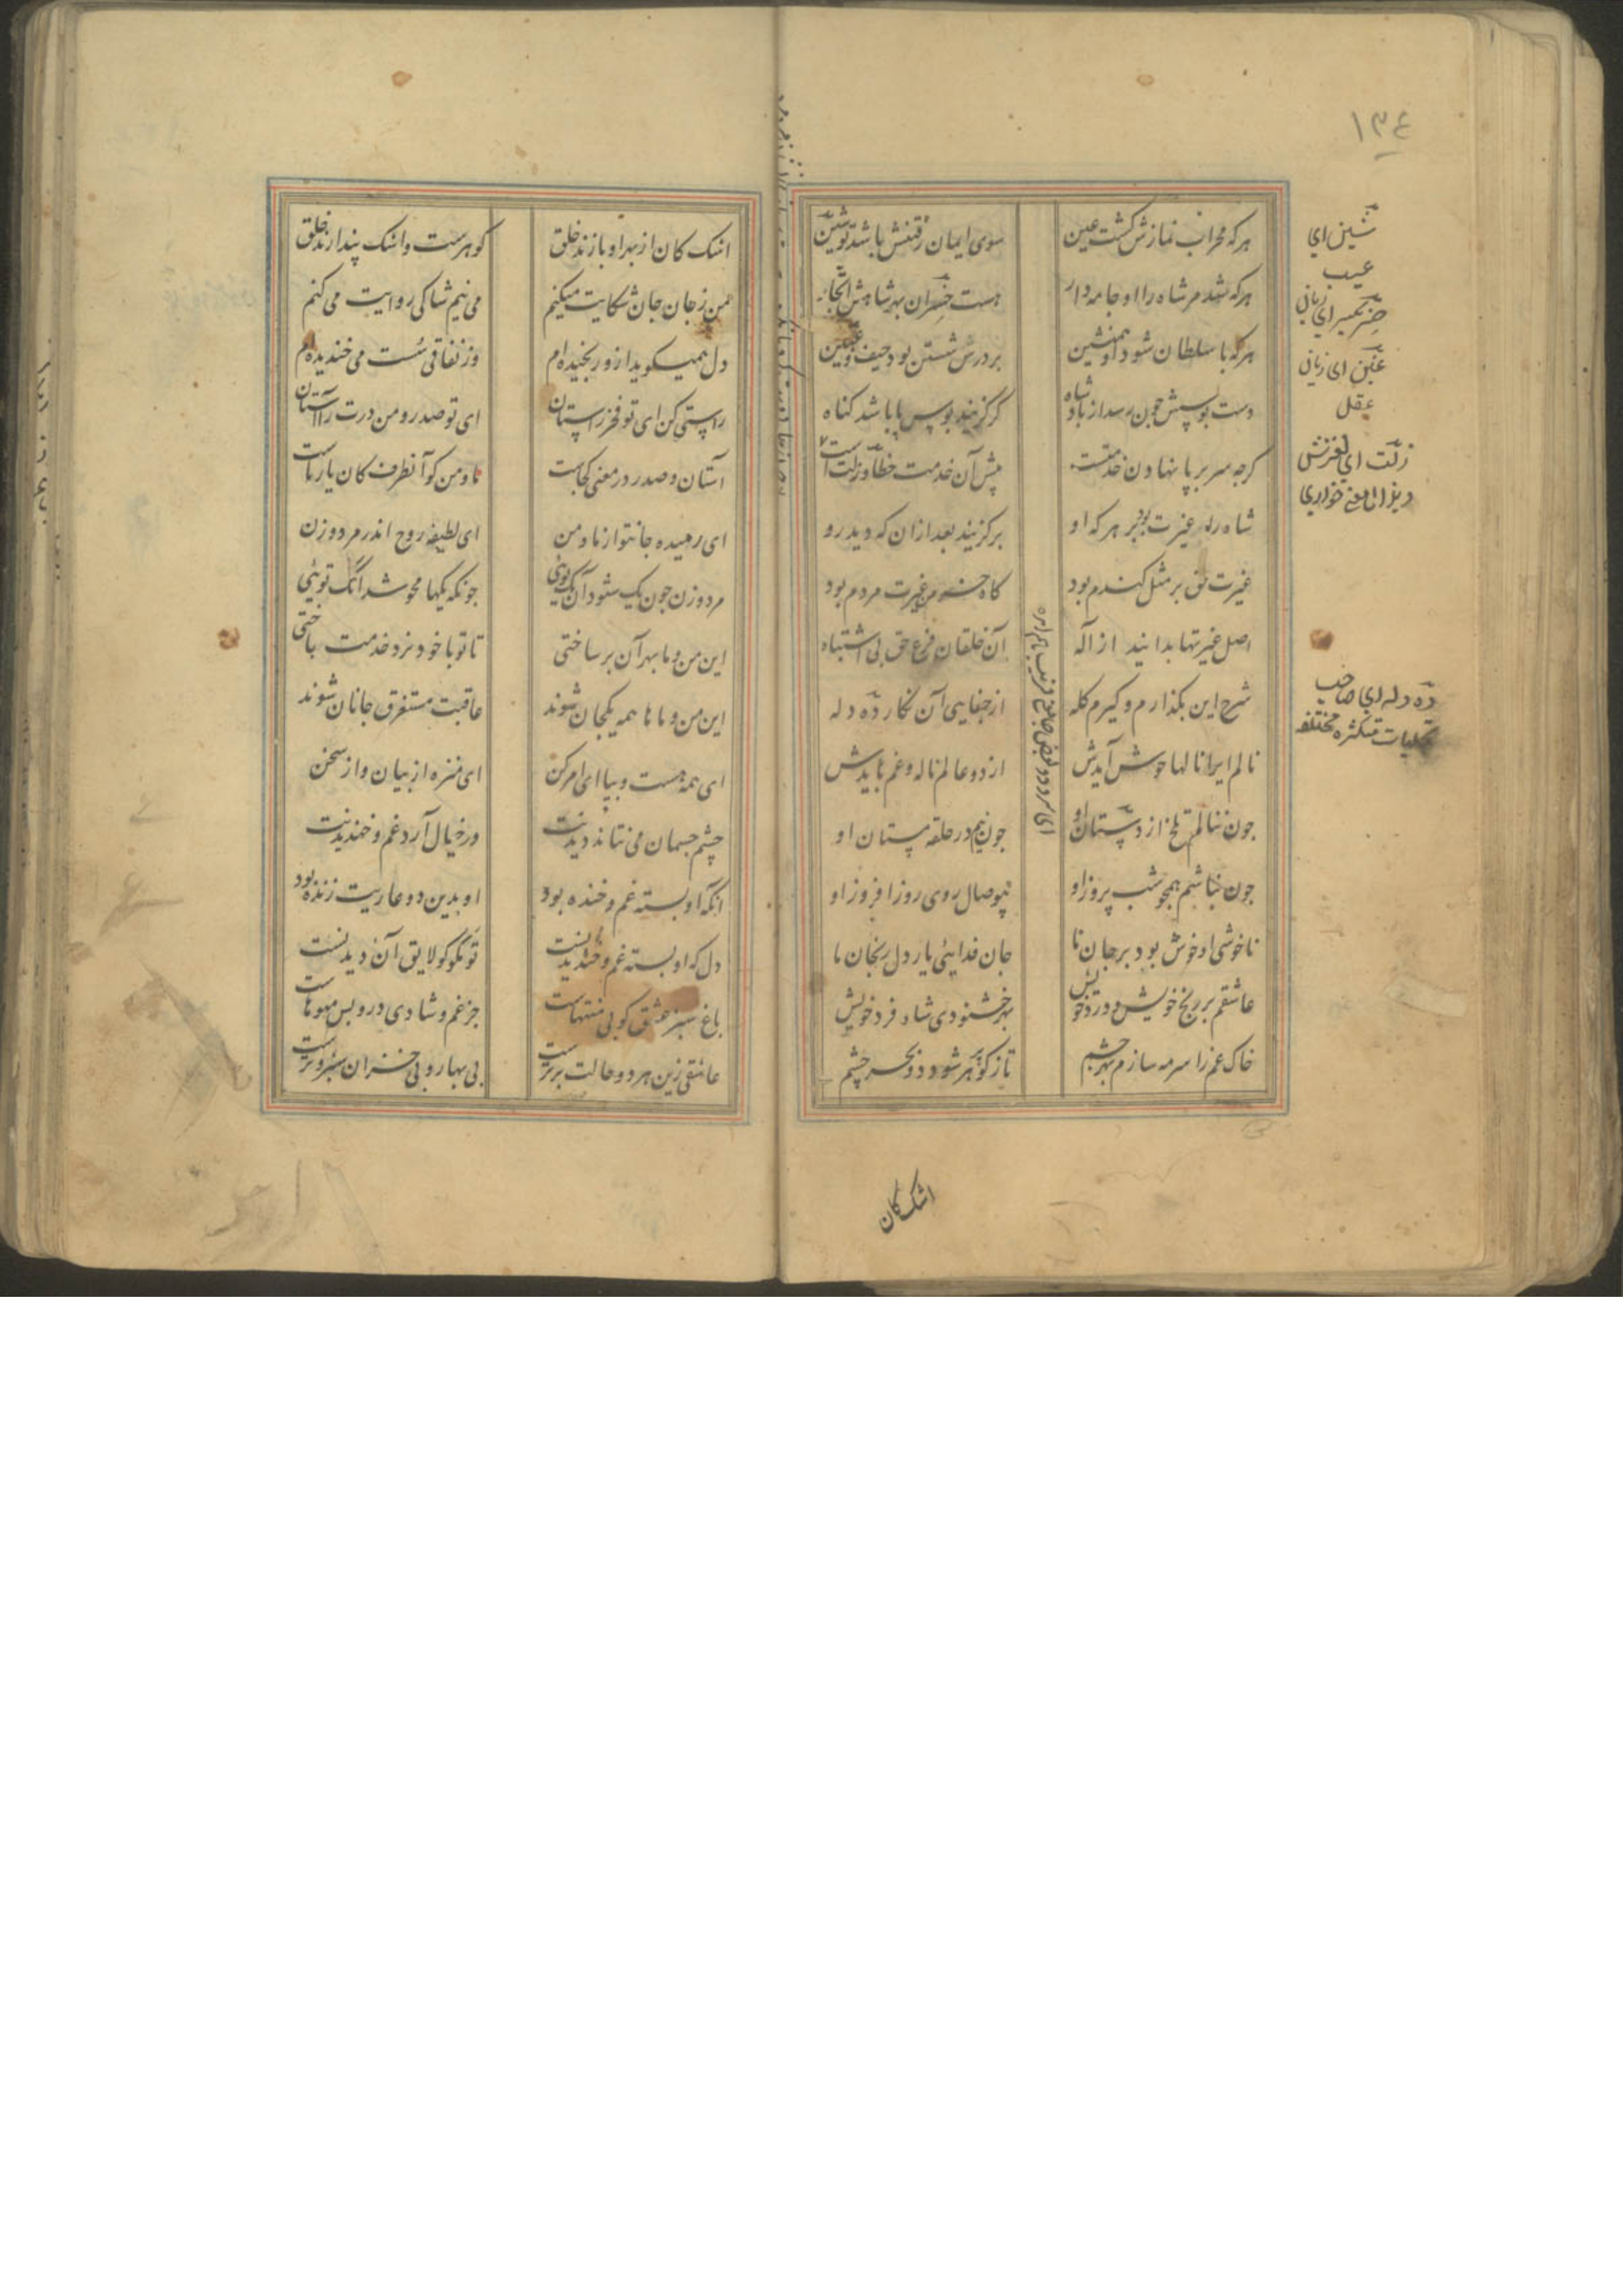 ١٣٤
هرکه محراب نمازش کشت عین
سوی ایمان رفتنش باشد تو شین
هرکه شد مر شاه را او جامه دار
هست خسران بهر شاهش اتجار
هرکه با سلطان شود او همنشین
بر درش شستن بود حیف و غبین
دست بوسش جون رسد از بادشاه
کر کزیند بوس پا باشد کناه
کرجه سر بر پا نهادن خدمتست
پیش آن خدمت خطا و زلت است
شاه را غیرت بود بر هرکه او
بر کزیند بعد از ان که دید رو
غیرت حق بر مثل کندم بود
کاه خرمن غیرت مردم بود
اصل غیرتها بدانید از آله
آن خلقان فرع حق بی اشتباه
شرح این بکذارم و کیرم کله
از جفایی آن نکار ده دله
نالم ایرا نالها خوش آیدش
از دو عالم ناله و غم بایدش
جون ننالم تلخ از دستان او
جون نیم در حلقه مستان او
جون نباشم همجو شب بی روز او
بی وصال روی روز افروز او
ناخوشی او خوش بود بر جان ما
جان فدایی یار دل رنجان ما
عاشقم بر رنج خویش و درد خویش
بهر خشنودی شاه فرد خویش
خاک غم را سرمه سازم بهر جشم
تا ز کوهر پر شود دو بحر چشم
شین ای
عیب
ای زیانی
غبین ای زیانی
عقل
زلت ای لغزش
خواری
ده دله ای صاحب
تجلیات متکثره مختلفه
اشک کان
اشک کان از بهر او بارند خلق
کوهرست و اشک پندارند خلق
من ز جان جان شکایت میکنم
من نیم شاکی روایت می کنم
دل همیکوید ازو رنجیده ام
وز نفاقی سست می خندیده ام
راستی کن ای تو فخر راستان
ای تو صدر و من درت را آستان
آستان و صدر در معنی کجاست
ما و من کو آنطرف کان یار ماست
ای رهیده جانتو از ما و من
ای لطیفه روح اندر مرد و زن
مرد و زن جون یک شود آن یک تویی
جونکه یکها محو شد آنک تویی
این من و ما بهر آن بر ساختی
تا تو با خود نرد خدمت باختی
این من و ما ها همه یکجان شوند
عاقبت مستغرق جانان شوند
ای همه هست و بیا ای امر کن
ای منزه از بیان و از سخن
چشم جسمان می نتاند دیدنت
در خیال آرد غم و خندیدنت
آنکه او بسته غم و خنده بود
او بدین دو عاریت زنده بود
دل که او بسته غم و خندیدنست
تو مکو کو لایق آن دیدنست
باغ سبز عشق کو بی منتهاست
جز غم و شادی درو بس میوهاست
عاشقی زین هر دو حالت برترست
بی بهار و بی خزان سبز و ترست